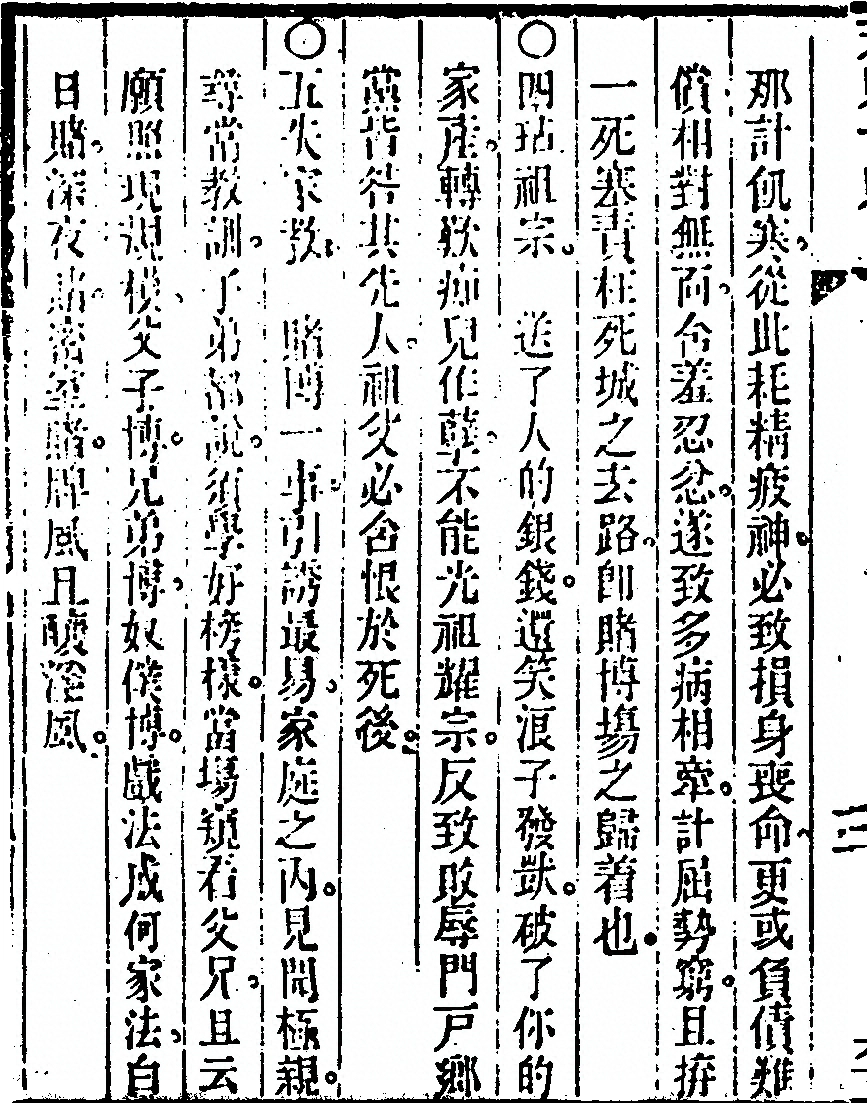 那計飢寒。從此耗精疲神。必致損身喪命。更或負債難
償。相對無面。含羞忍忿。遂致多病相牽。計屈勢窮。且拚
一死塞責。枉死城之去路。卽賭博場之歸着也。
○四玷祖宗。 送了人的銀錢。還笑浪子發獃。破了你的
家產。轉歎痴兒作孽。不能光祖耀宗。反致敗辱門戶。鄉
黨皆咎其先人。祖父必含恨於死後。
○五失家教。 賭博一事。引誘最易。家庭之內。見聞極親。
尋常教訓。子弟都說須學好榜樣。當場窺看父兄。且云
願照現規模。父子博。兄弟博。奴僕博。戲法成何家法。白
日賭。深夜賭。密室賭。牌風且釀淫風。